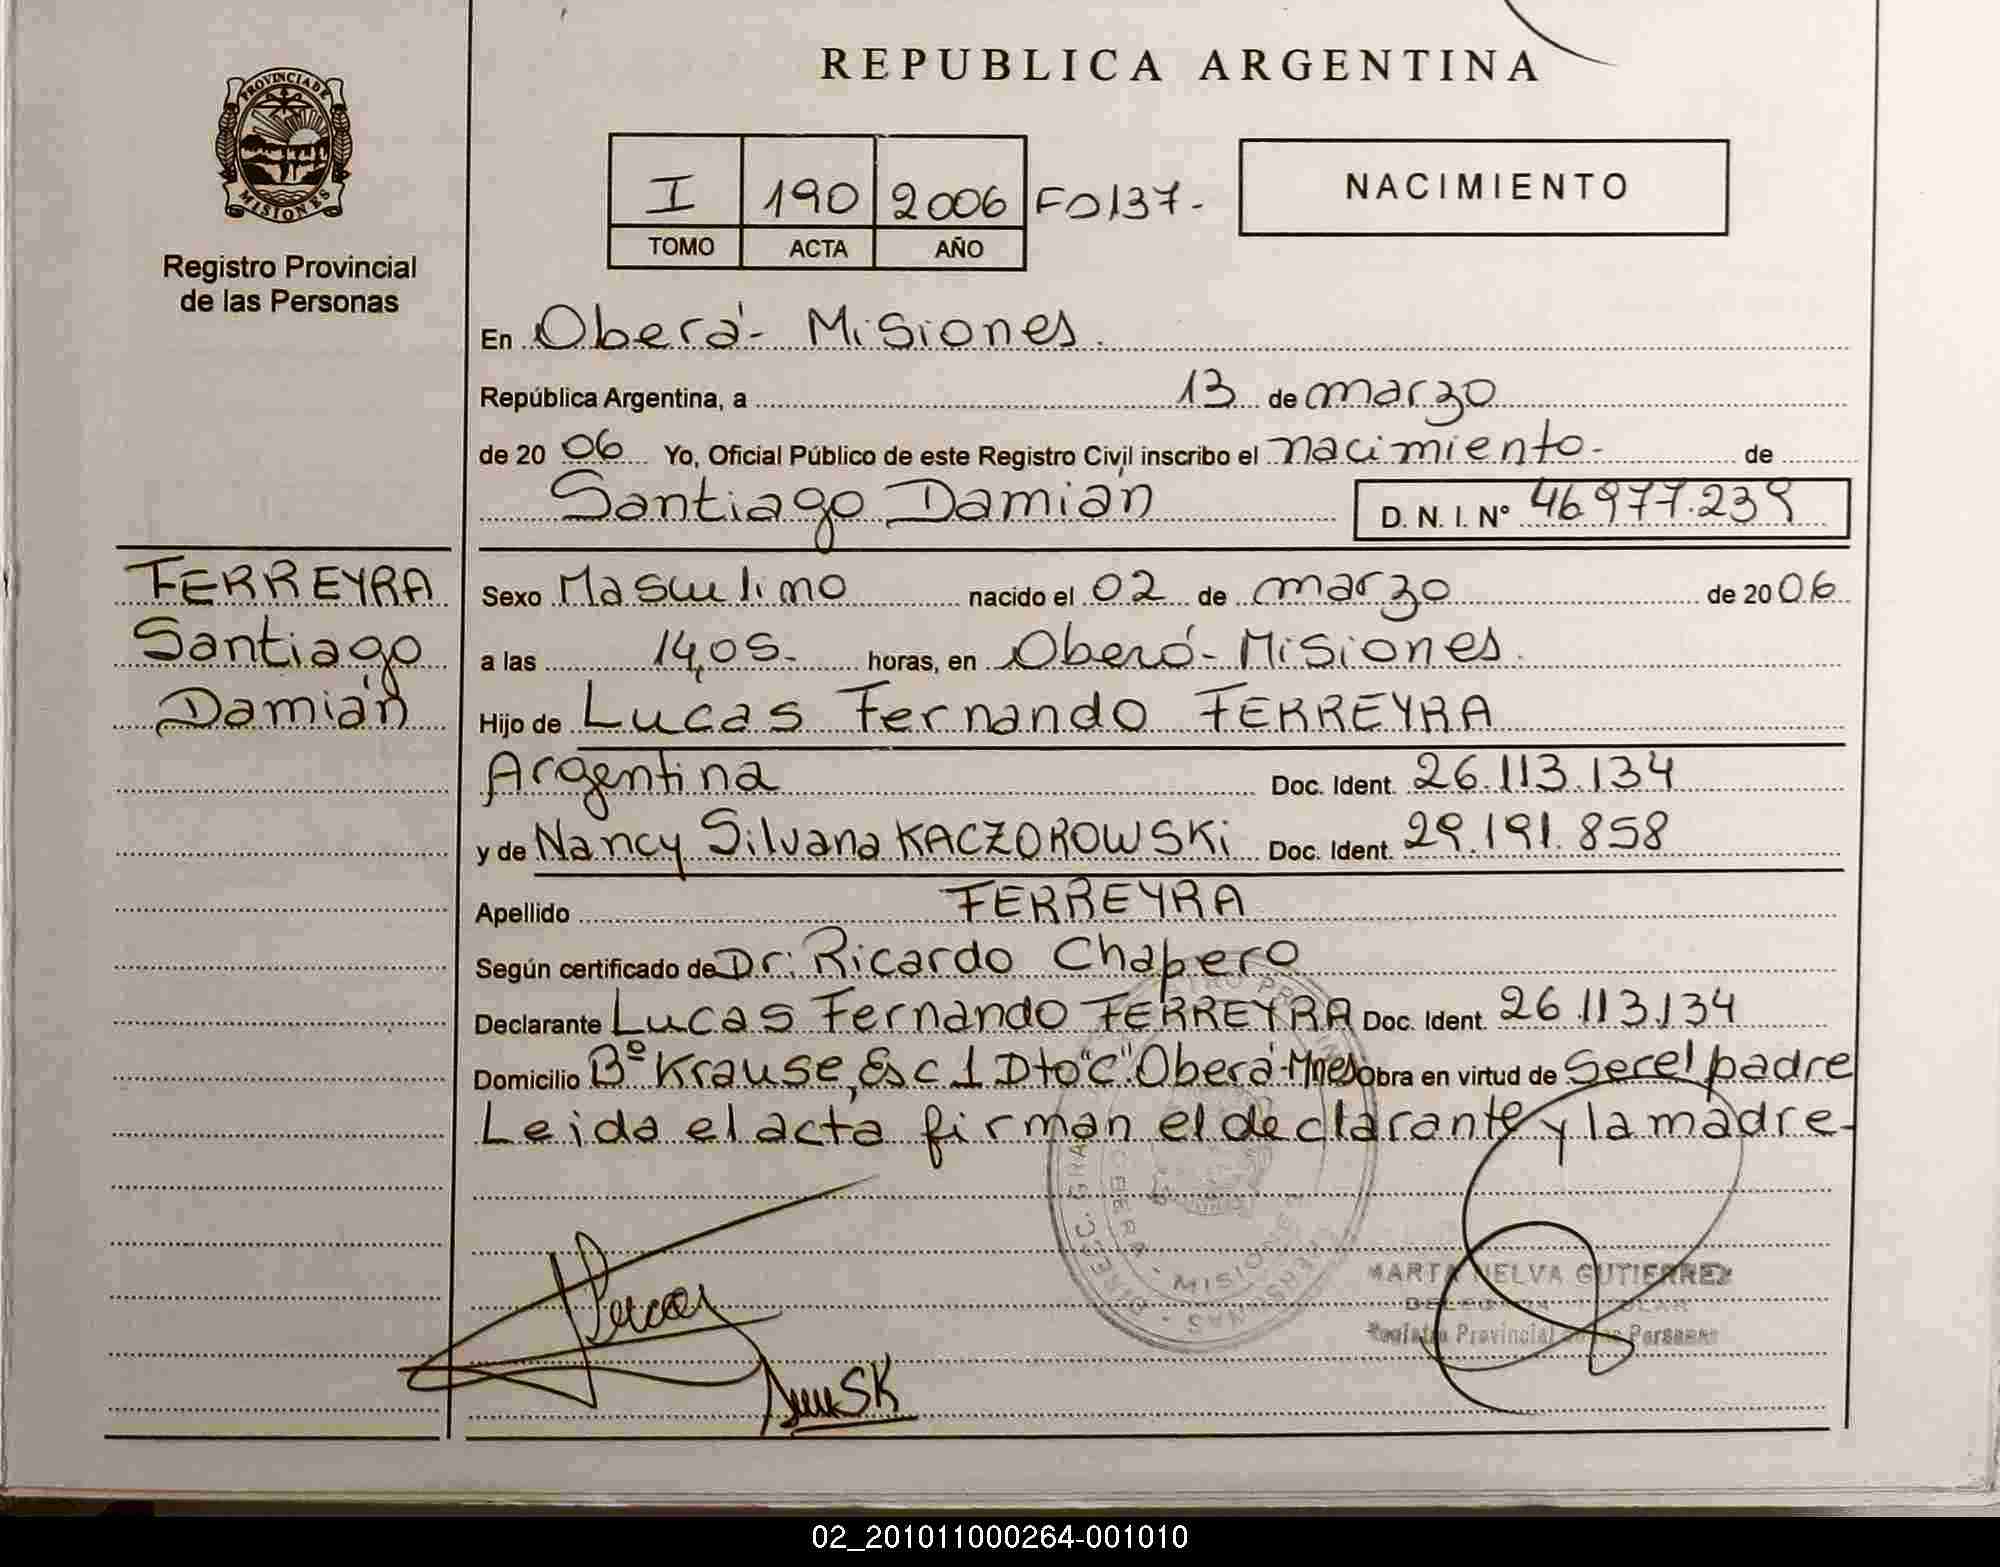 REPUBLICA ARGENTINA
PROVINCIA DE
MISIONES
Registro Provincial
de las Personas
I 190 2006 Fo137-
TOMO ACTA AÑO
NACIMIENTO
En Oberá- Misiones.
República Argentina, a 13 de marzo
de 2006 Yo, Oficial Público de este Registro Civil inscribo el nacimiento- de
Santiago Damián D. N. I. Nº 46977.239
FERREYRA
Santiago
Damián
Sexo Masculino nacido el 02 de marzo de 2006
a las 14,05- horas, en Oberá- Misiones.
Hijo de Lucas Fernando FERREYRA
Argentina Doc. Ident. 26.113.134
y de Nancy Silvana KACZOROWSKi Doc. Ident. 29.191.858
Apellido FERREYRA
Según certificado de Dr. Ricardo Chapero
Declarante Lucas Fernando FERREYRA Doc. Ident. 26.113.134
Domicilio Bº Krause, Esc 1 Dto "C" Oberá-Mnes obra en virtud de Ser el padre
Leida el acta firman el declarante y la madre-
MISIONES
MARTA NELVA GUTIERREZ
DELEGADA TITULAR
Registro Provincial de las Personas
02_201011000264-001010